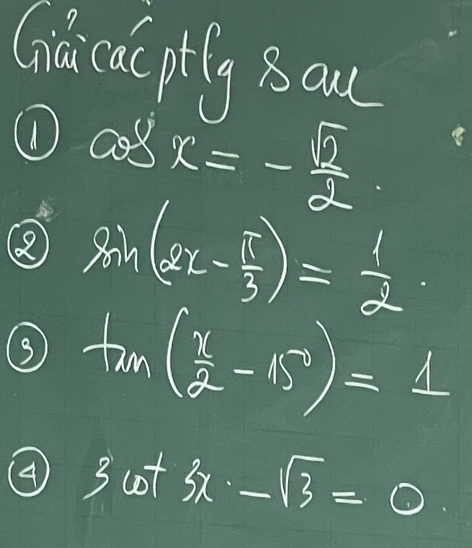 Giải các ptlg sau
① cos x = - √2/2.
② sin(2x - π/3) = 1/2.
③ tan(x/2 - 15°) = 1
④ 3 cot 3x - √3 = 0.